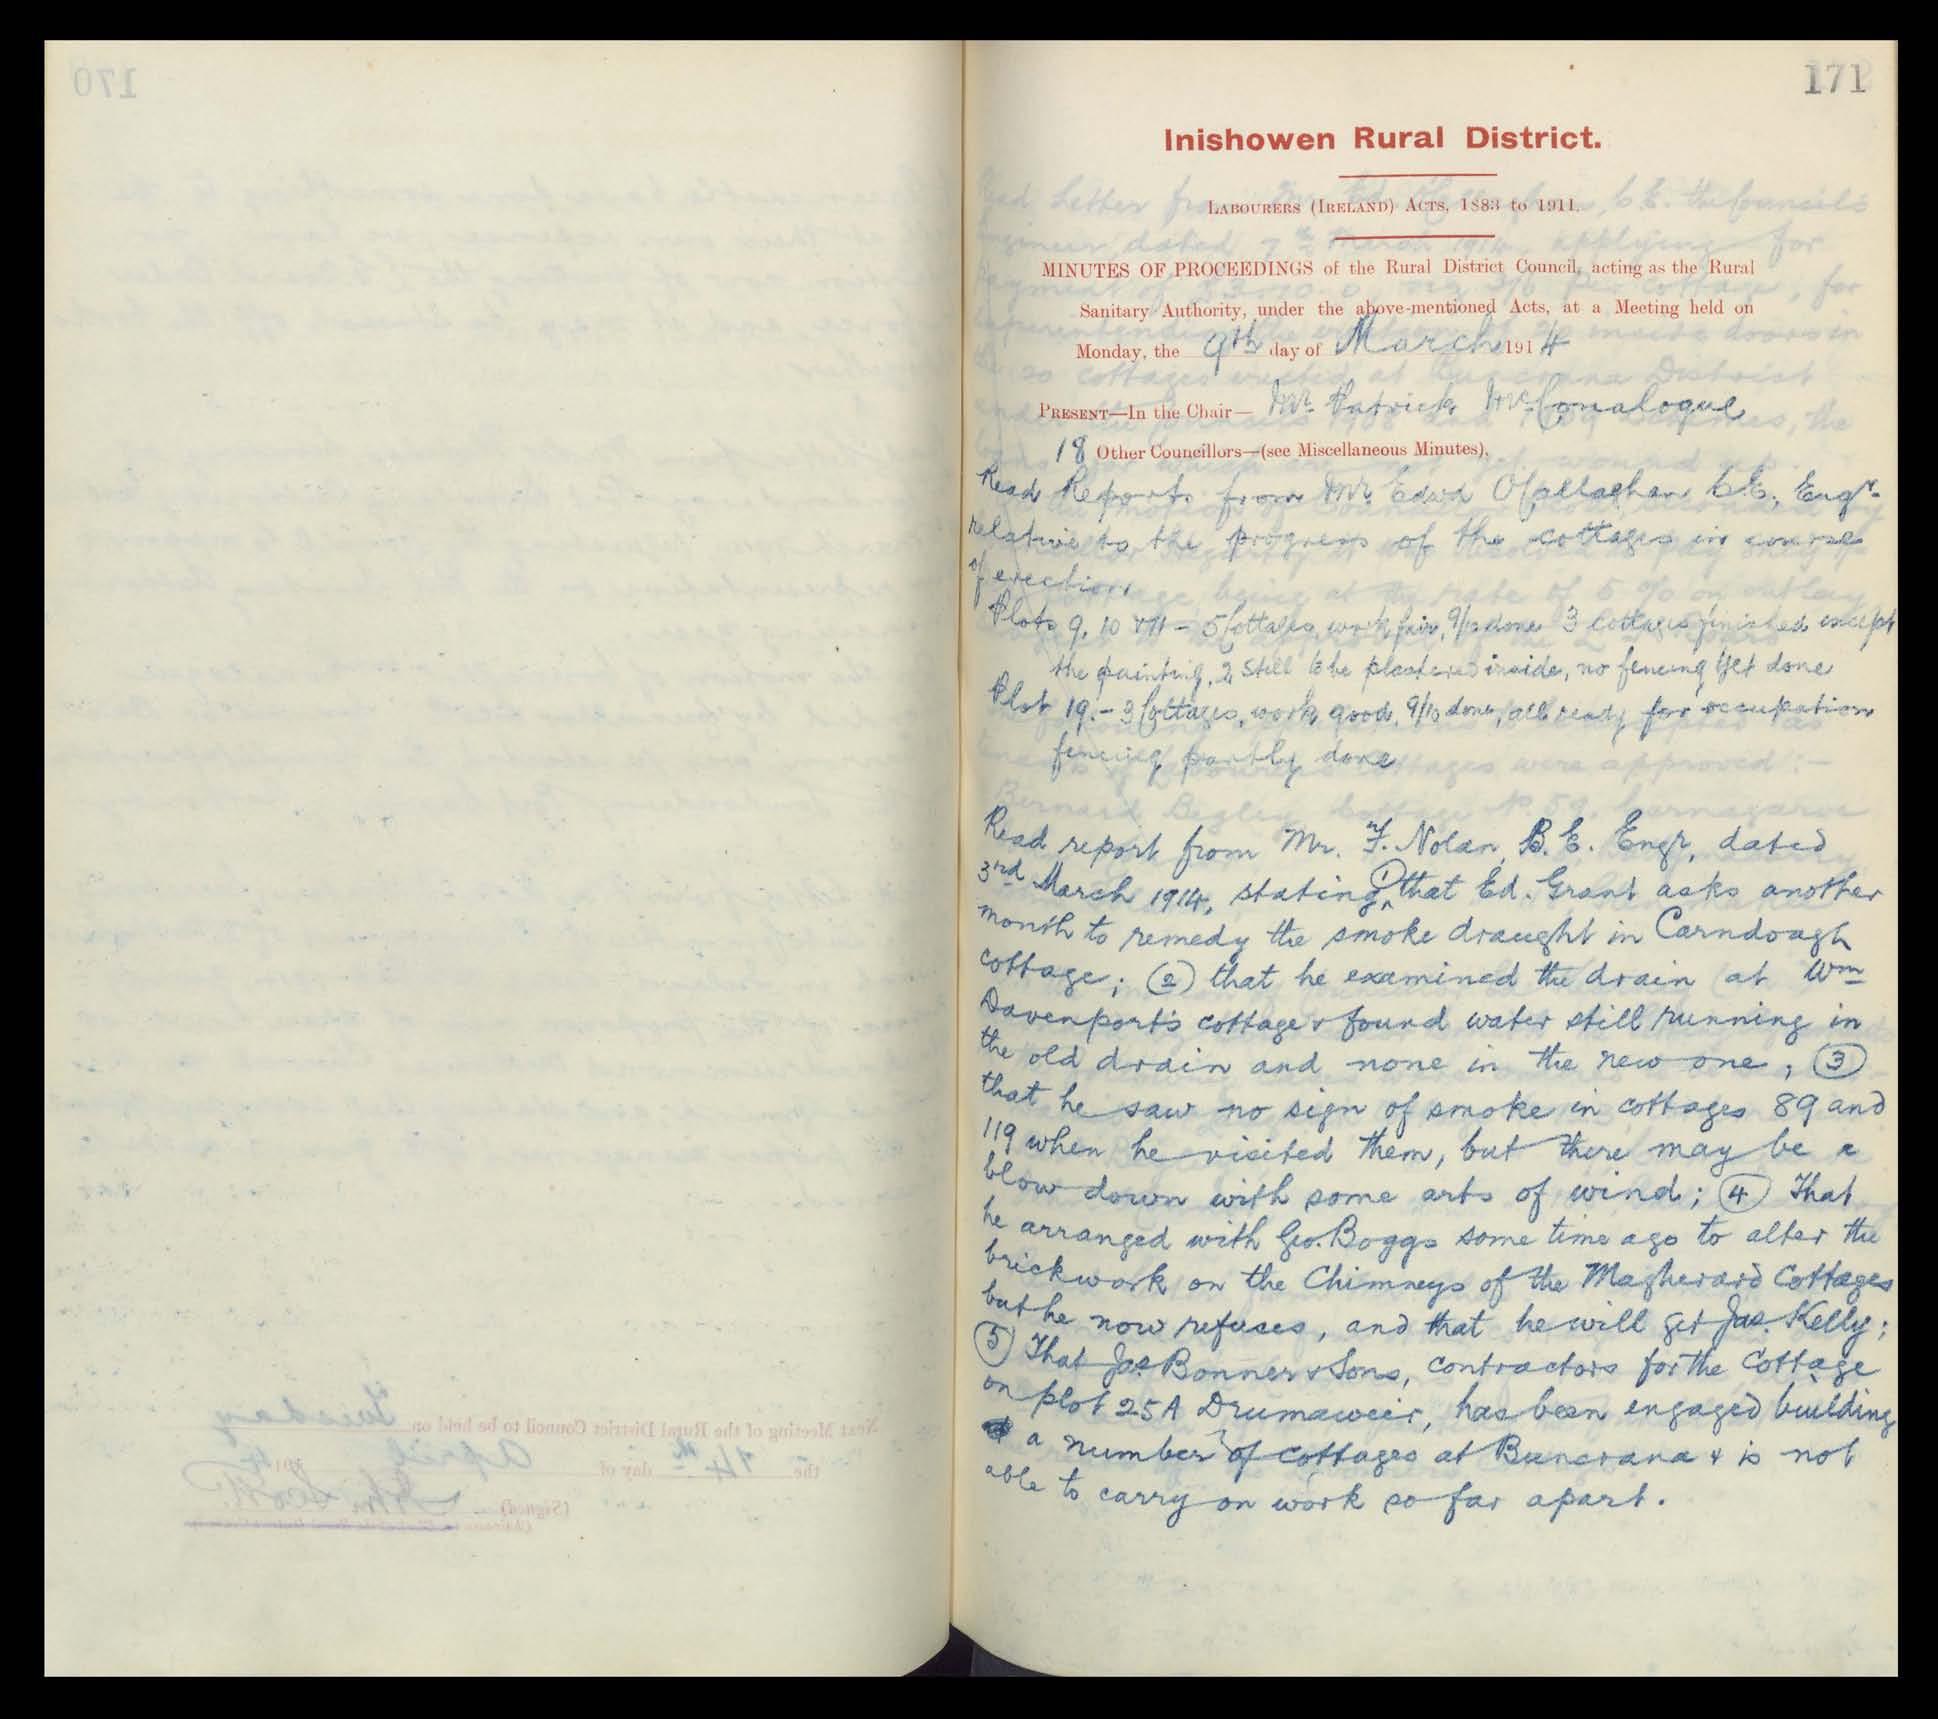 171
Inishowen Rural District.
LABOURERS (IRELAND) ACTS, 1883 to 1911.
MINUTES OF PROCEEDINGS of the Rural District Council, acting as the Rural
Sanitary Authority, under the above-mentioned Acts, at a Meeting held on
Monday, the 9th day of March 1914
PRESENT—In the Chair— Mr. Patrick McConalogue
18 Other Councillors—(see Miscellaneous Minutes).
Read Reports from Mr. Edwd O'Callaghan C.E., Engr.
relative to the progress of the cottages in course
of erection
Plots 9, 10 & 11 - 5 Cottages, work fair, 9/10 done 3 cottages finished except
the painting, 2 still to be plastered inside, no fencing yet done
Plot 19. - 3 Cottages, work good, 9/10 done, all ready for occupation
fencing partly done
Read report from Mr. F. Nolan, B.E. Engr, dated
3rd March 1914, stating (1) that Ed. Grant asks another
month to remedy the smoke draught in Carndoagh
cottage; (2) that he examined the drain at Wm
Davenport's cottage & found water still running in
the old drain and none in the new one; (3)
that he saw no sign of smoke in cottages 89 and
119 when he visited them, but there may be a
blow down with some arts of wind; (4) That
he arranged with Geo. Boggs some time ago to alter the
brickwork on the Chimneys of the Magherard Cottages
but he now refuses, and that he will get Jas. Kelly;
(5) That Jas. Bonner & Sons, contractors for the Cottage
on plot 25A Drumaweir, has been engaged building
a number of cottages at Buncrana & is not
able to carry on work so far apart.